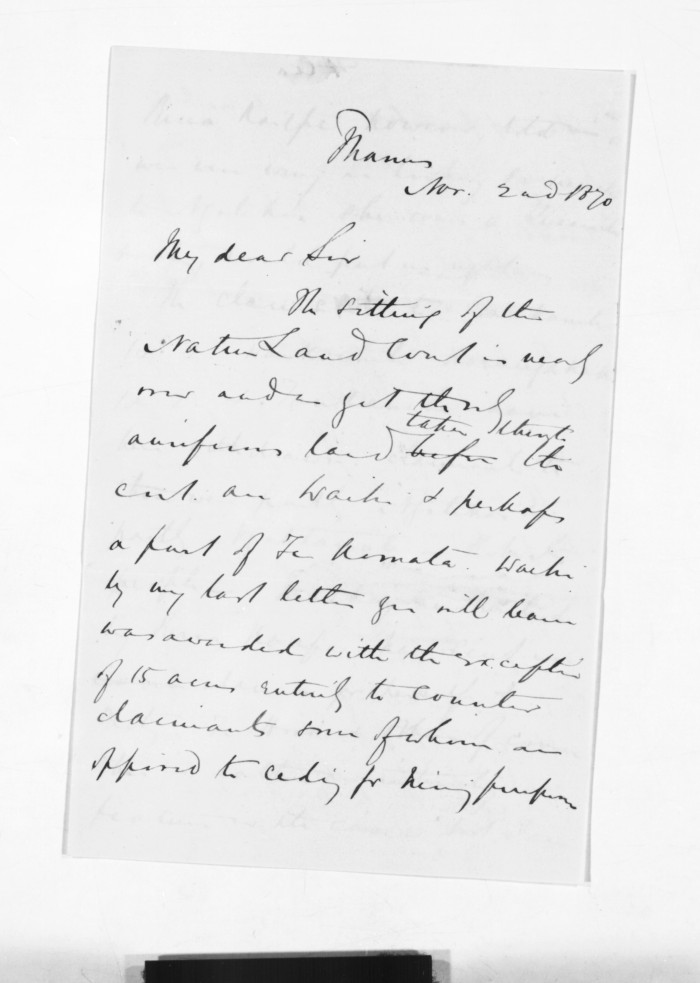 Thames
Nov. 2nd 1870
My dear Sir
The sitting of the
Native Land Court is nearly
over and as yet the only
auriferous land taken through the
Court are Waihi & perhaps
a part of Te Komata. Waihi
by my last letter you will learn
was awarded with the exception
of 15 acres entirely to Counter
claimants some of whom are
opposed to ceding for Mining purposes